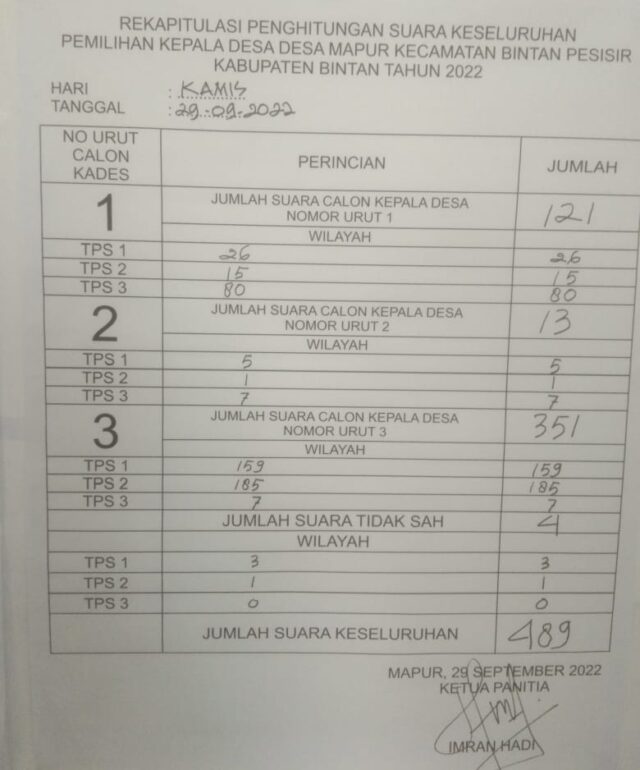 REKAPITULASI PENGHITUNGAN SUARA KESELURUHAN
PEMILIHAN KEPALA DESA DESA MAPUR KECAMATAN BINTAN PESISIR
KABUPATEN BINTAN TAHUN 2022
HARI : KAMIS
TANGGAL : 29-09-2022
NO URUT CALON KADES PERINCIAN JUMLAH
1 JUMLAH SUARA CALON KEPALA DESA NOMOR URUT 1 121
WILAYAH
TPS 1 26 26
TPS 2 15 15
TPS 3 80 80
2 JUMLAH SUARA CALON KEPALA DESA NOMOR URUT 2 13
WILAYAH
TPS 1 5 5
TPS 2 1 1
TPS 3 7 7
3 JUMLAH SUARA CALON KEPALA DESA NOMOR URUT 3 351
WILAYAH
TPS 1 159 159
TPS 2 185 185
TPS 3 7 7
JUMLAH SUARA TIDAK SAH 4
WILAYAH
TPS 1 3 3
TPS 2 1 1
TPS 3 0 0
JUMLAH SUARA KESELURUHAN 489
MAPUR, 29 SEPTEMBER 2022
KETUA PANITIA
IMRAN HADI